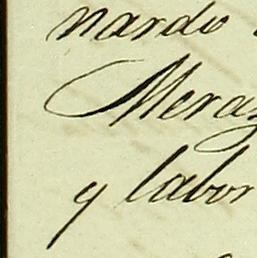 nardo
Meraz
y labor